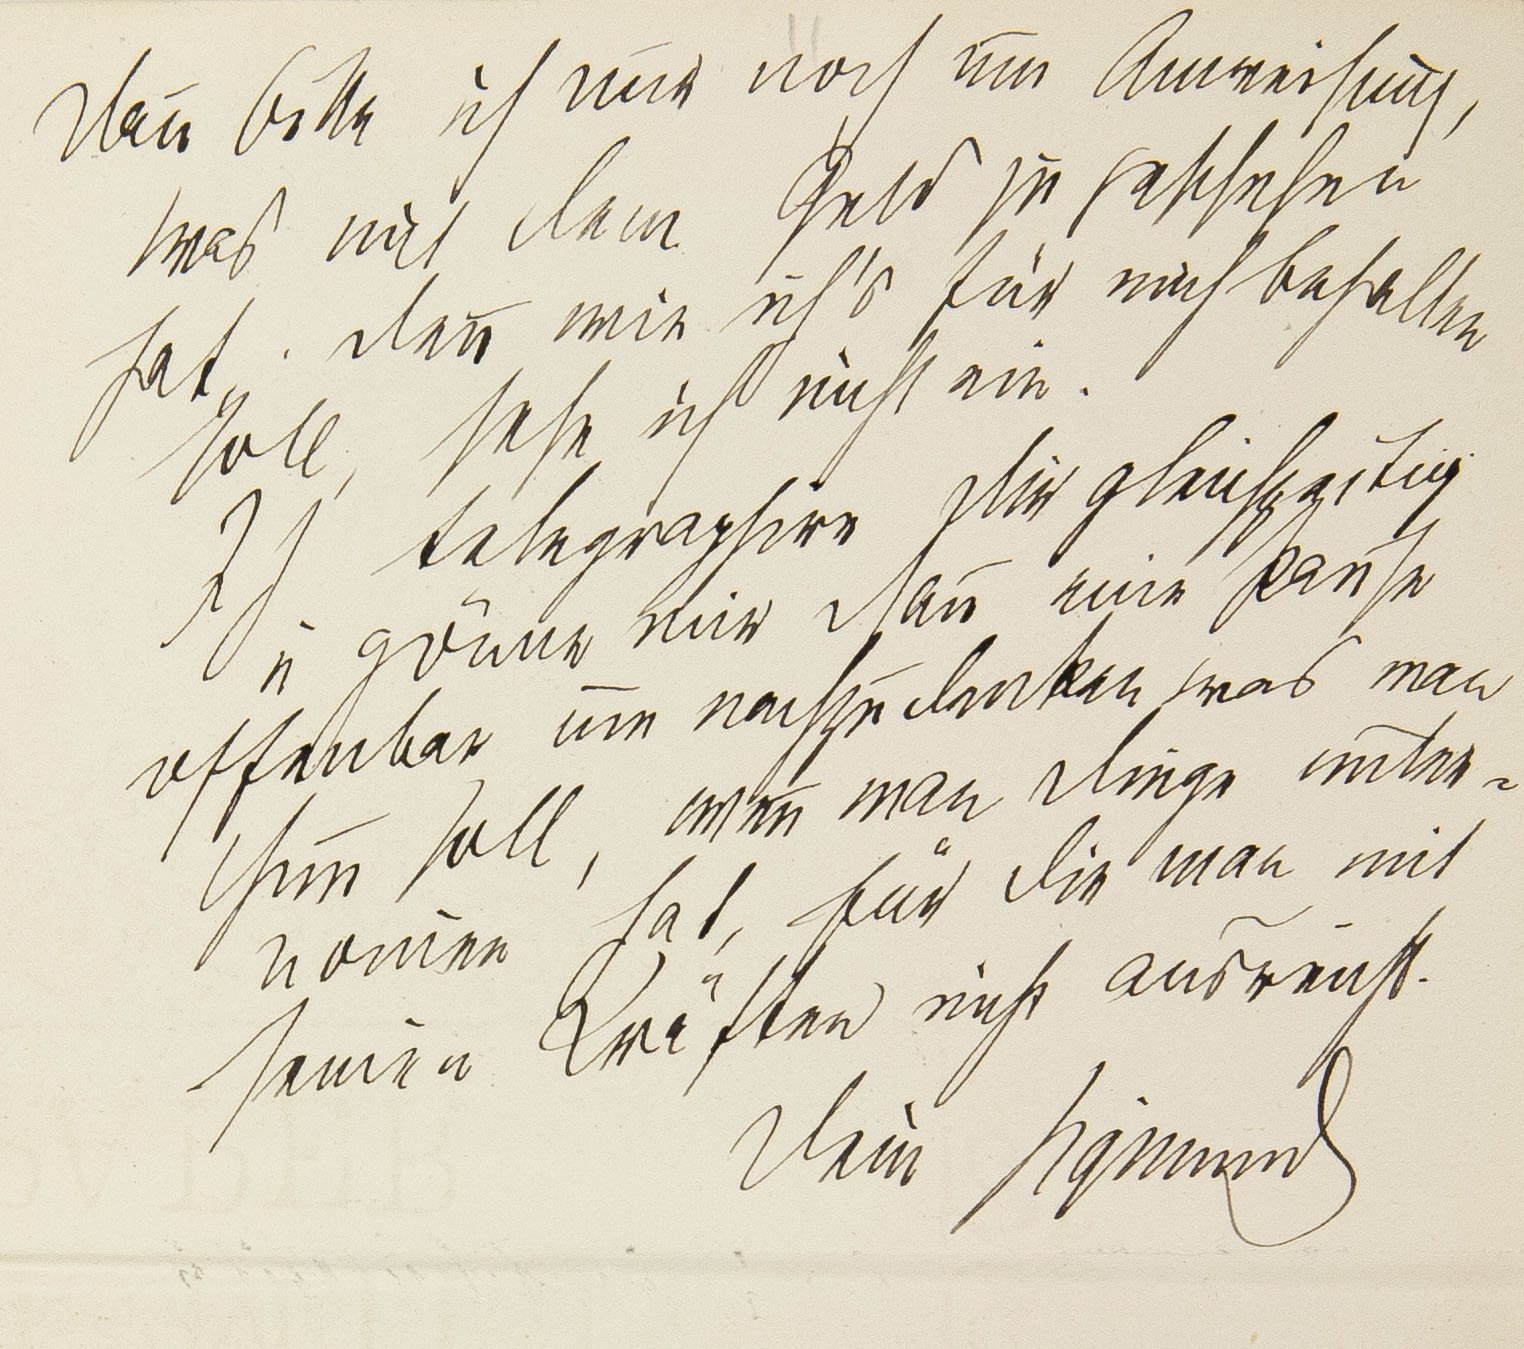 Dan̄ bitte ich nur noch um Anweisung,
was mit dem Geld zu geschehen
hat. Den̄ wie ich's für mich behalten
soll, sehe ich nicht ein.
Ich telegraphire Dir gleichzeitig
u gön̄e mir dan̄ eine Pause
offenbar um nachzudenken was man
thun soll, wen̄ man Dinge unter-
nom̄en hat, für die man mit
seinen Kräften nicht ausreicht.
Dein Sigmund